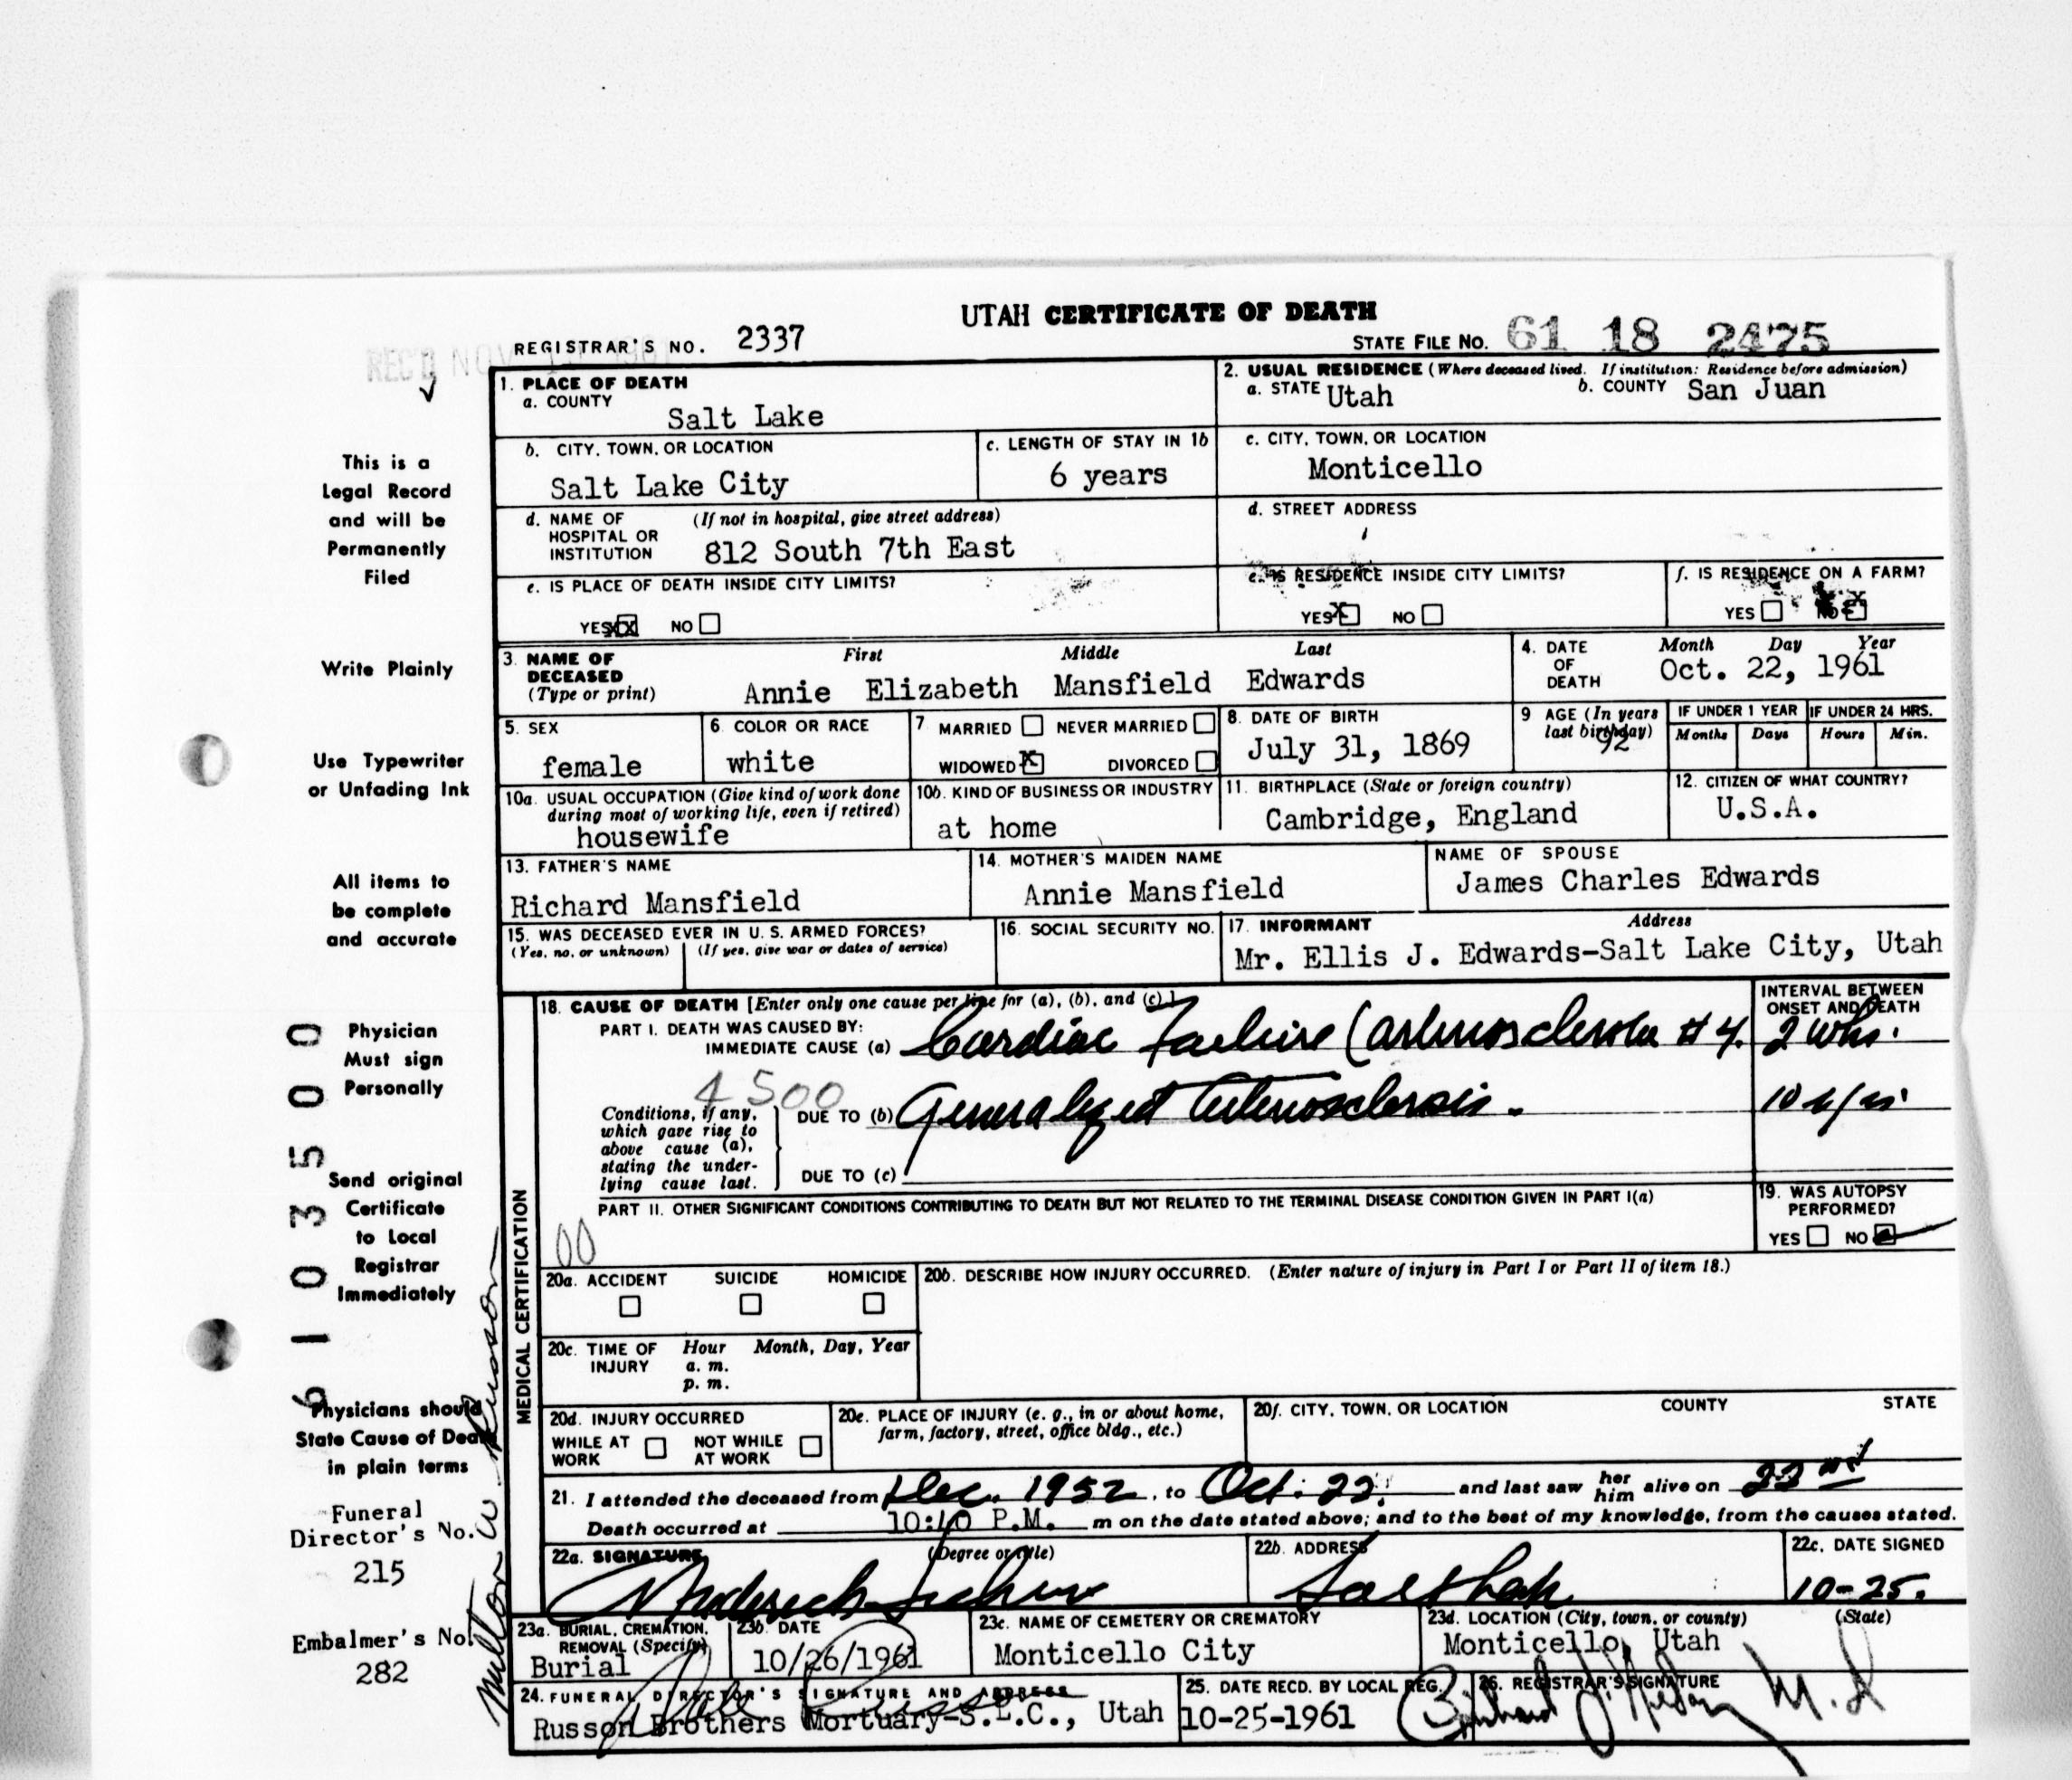 UTAH CERTIFICATE OF DEATH
REGISTRAR'S NO. 2337
STATE FILE NO. 61 18 2475
REC'D NOV 1961
This is a
Legal Record
and will be
Permanently
Filed
Write Plainly
Use Typewriter
or Unfading Ink
All items to
be complete
and accurate
Physician
Must sign
Personally
Send original
Certificate
to Local
Registrar
Immediately
Physicians should
State Cause of Death
in plain terms
Funeral
Director's No.
215
Embalmer's No.
282
61 035 00
Milton W. Russon
1. PLACE OF DEATH
a. COUNTY
Salt Lake
2. USUAL RESIDENCE (Where deceased lived. If institution: Residence before admission)
a. STATE Utah
b. COUNTY San Juan
b. CITY, TOWN, OR LOCATION
Salt Lake City
c. LENGTH OF STAY IN 1b
6 years
c. CITY, TOWN, OR LOCATION
Monticello
d. NAME OF HOSPITAL OR INSTITUTION (If not in hospital, give street address)
812 South 7th East
d. STREET ADDRESS
e. IS PLACE OF DEATH INSIDE CITY LIMITS?
YES XX NO
e. IS RESIDENCE INSIDE CITY LIMITS?
YES X NO
f. IS RESIDENCE ON A FARM?
YES NO X
3. NAME OF DECEASED (Type or print)
First Middle Last
Annie Elizabeth Mansfield Edwards
4. DATE OF DEATH
Month Day Year
Oct. 22, 1961
5. SEX
female
6. COLOR OR RACE
white
7 MARRIED NEVER MARRIED
WIDOWED X DIVORCED
8. DATE OF BIRTH
July 31, 1869
9 AGE (In years last birthday)
92
IF UNDER 1 YEAR
Months Days
IF UNDER 24 HRS.
Hours Min.
10a. USUAL OCCUPATION (Give kind of work done during most of working life, even if retired)
housewife
10b. KIND OF BUSINESS OR INDUSTRY
at home
11. BIRTHPLACE (State or foreign country)
Cambridge, England
12. CITIZEN OF WHAT COUNTRY?
U.S.A.
13. FATHER'S NAME
Richard Mansfield
14. MOTHER'S MAIDEN NAME
Annie Mansfield
NAME OF SPOUSE
James Charles Edwards
15. WAS DECEASED EVER IN U. S. ARMED FORCES?
(Yes, no, or unknown) (If yes, give war or dates of service)
16. SOCIAL SECURITY NO.
17. INFORMANT Address
Mr. Ellis J. Edwards-Salt Lake City, Utah
MEDICAL CERTIFICATION
18. CAUSE OF DEATH [Enter only one cause per line for (a), (b), and (c).]
INTERVAL BETWEEN ONSET AND DEATH
PART I. DEATH WAS CAUSED BY:
IMMEDIATE CAUSE (a) Cardiac Failure (arteriosclerotic #4. 2 wks.
4500
Conditions, if any, which gave rise to above cause (a), stating the underlying cause last.
DUE TO (b) Generalized Arteriosclerosis. 10 yrs.
DUE TO (c)
PART II. OTHER SIGNIFICANT CONDITIONS CONTRIBUTING TO DEATH BUT NOT RELATED TO THE TERMINAL DISEASE CONDITION GIVEN IN PART I(a)
00
19. WAS AUTOPSY PERFORMED?
YES NO
20a. ACCIDENT SUICIDE HOMICIDE
20b. DESCRIBE HOW INJURY OCCURRED. (Enter nature of injury in Part I or Part II of item 18.)
20c. TIME OF INJURY Hour Month, Day, Year
a. m.
p. m.
20d. INJURY OCCURRED
WHILE AT WORK NOT WHILE AT WORK
20e. PLACE OF INJURY (e. g., in or about home, farm, factory, street, office bldg., etc.)
20f. CITY, TOWN, OR LOCATION COUNTY STATE
21. I attended the deceased from Dec. 1952, to Oct. 22, and last saw her him alive on 22nd
Death occurred at 10:10 P.M. m on the date stated above; and to the best of my knowledge, from the causes stated.
22a. SIGNATURE (Degree or title)
22b. ADDRESS
Salt Lake
22c. DATE SIGNED
10-25.
23a. BURIAL, CREMATION, REMOVAL (Specify)
Burial
23b. DATE
10/26/1961
23c. NAME OF CEMETERY OR CREMATORY
Monticello City
23d. LOCATION (City, town, or county) (State)
Monticello, Utah
24. FUNERAL DIRECTOR'S SIGNATURE AND ADDRESS
Dale Russon
Russon Brothers Mortuary-S.L.C., Utah
25. DATE RECD. BY LOCAL REG.
10-25-1961
26. REGISTRAR'S SIGNATURE
M.D